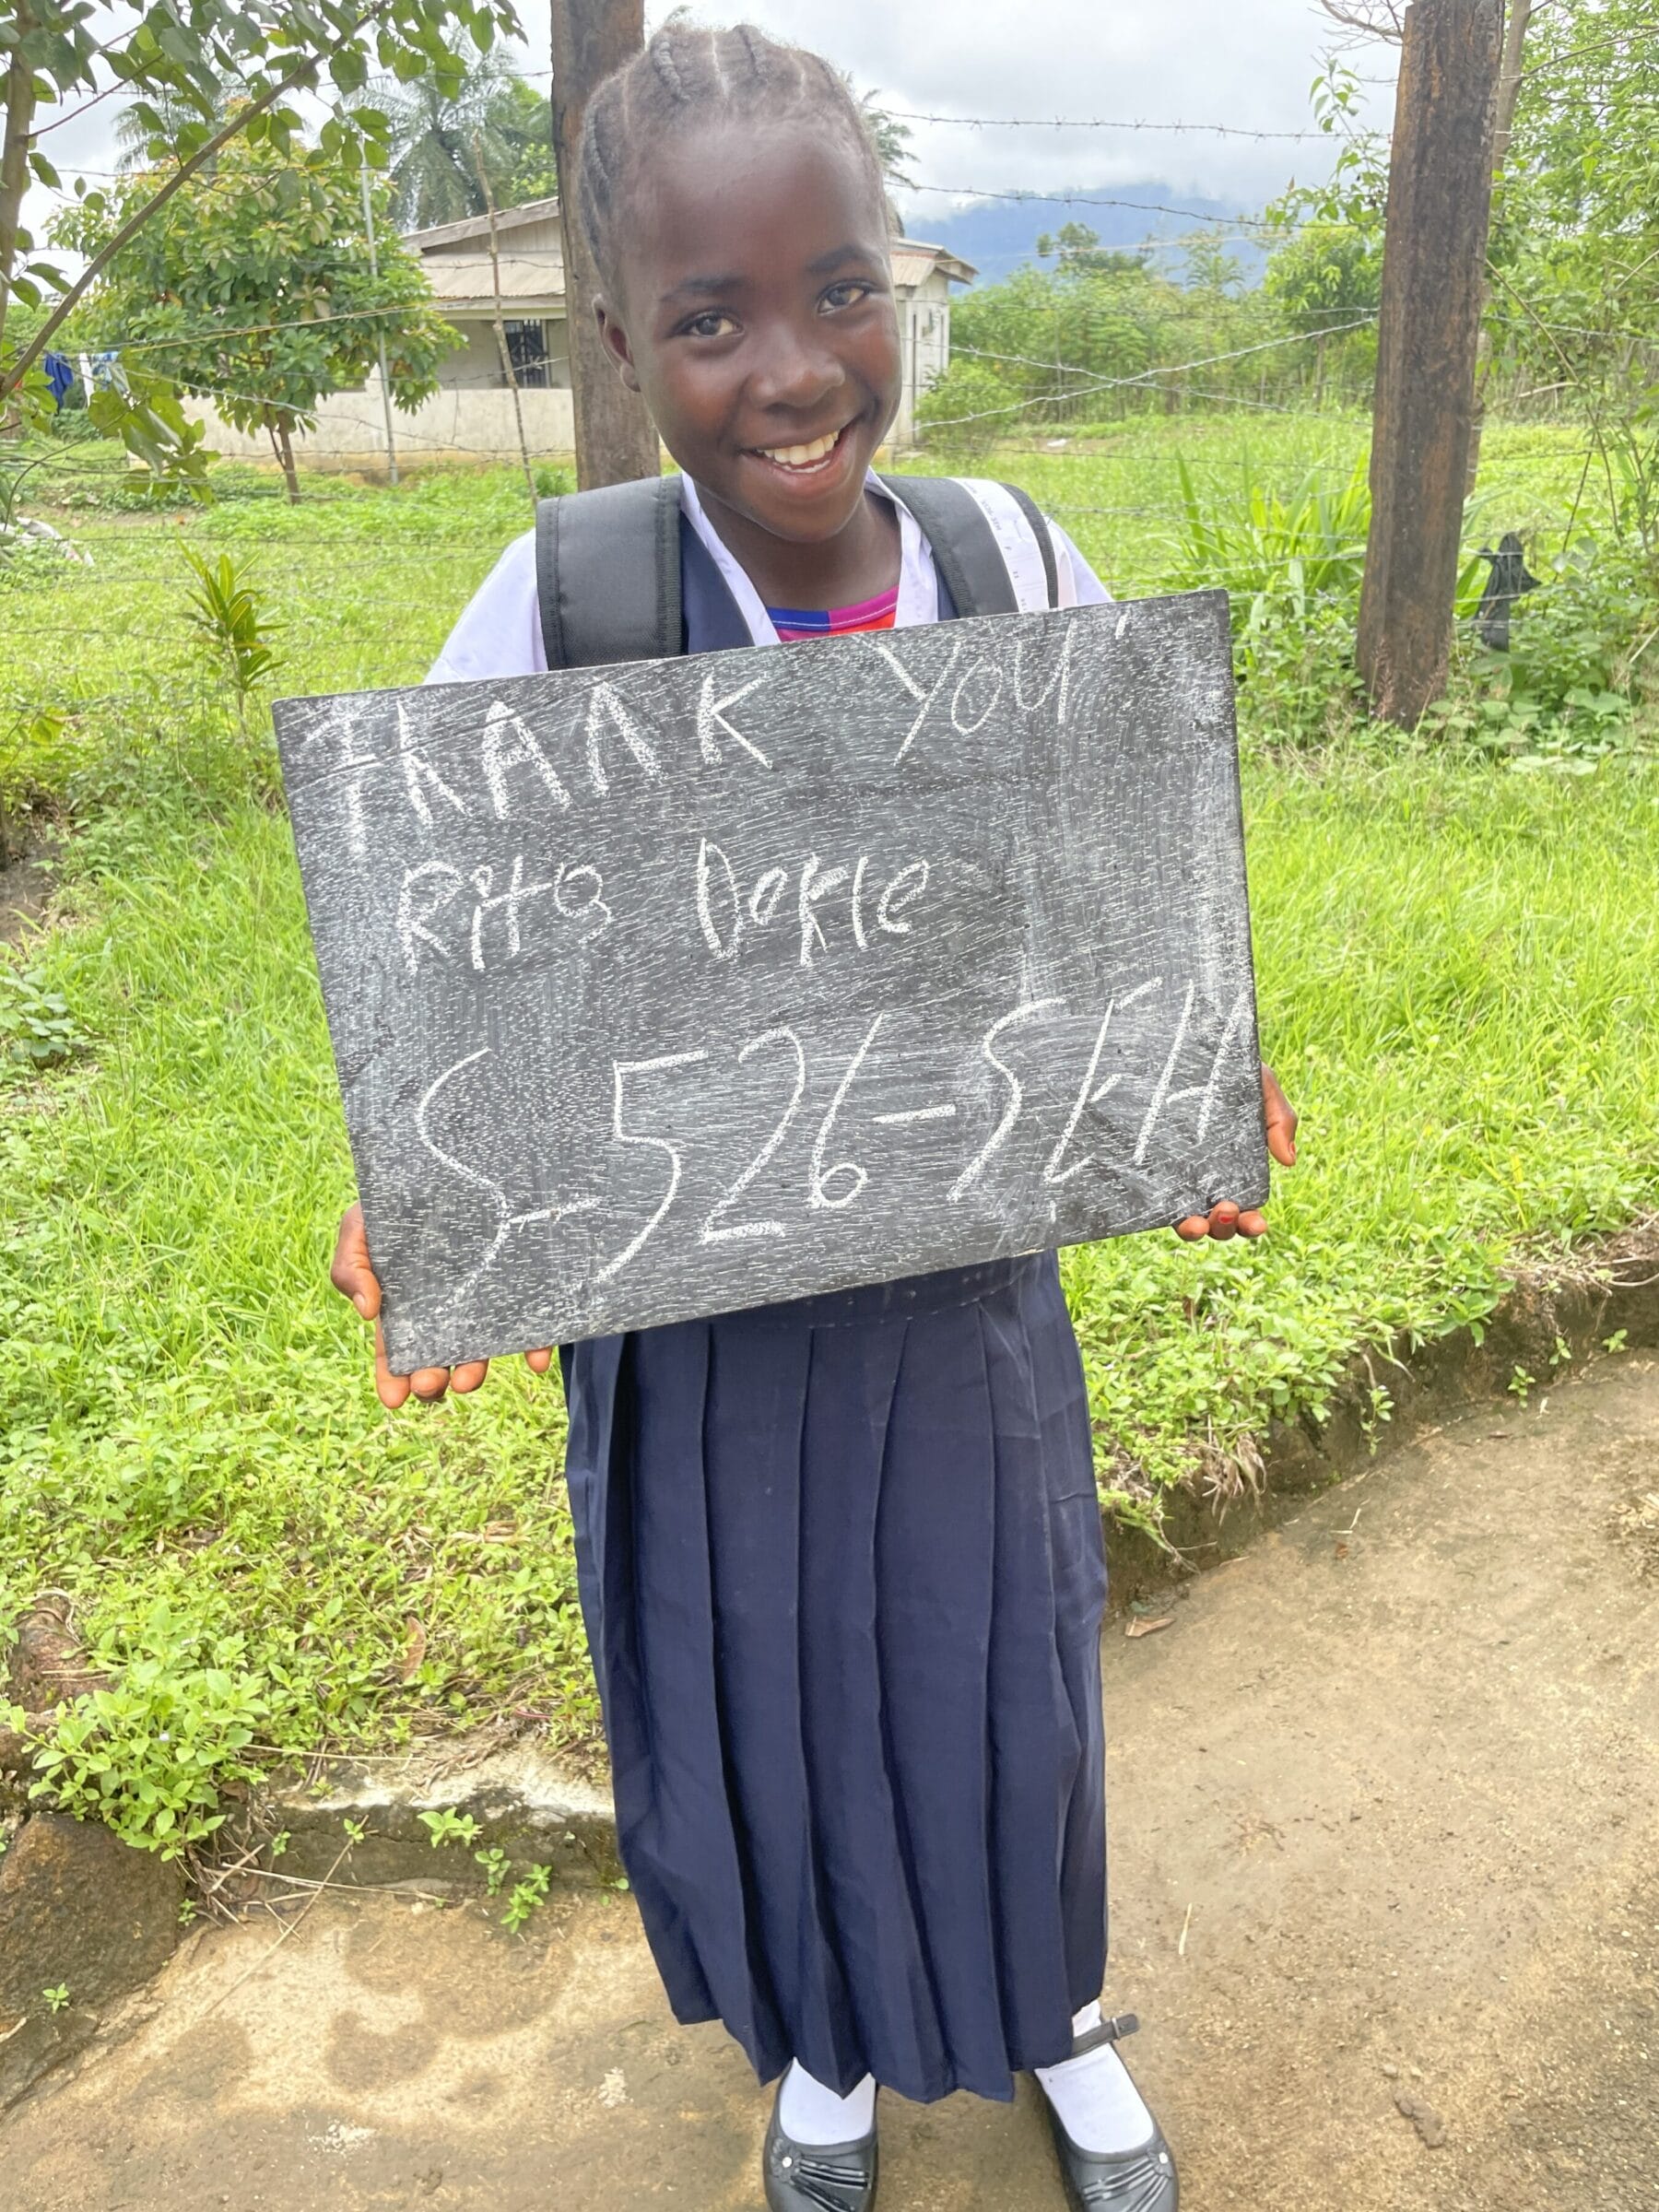 THANK YOU
Rita Dokie
S-526-SKH